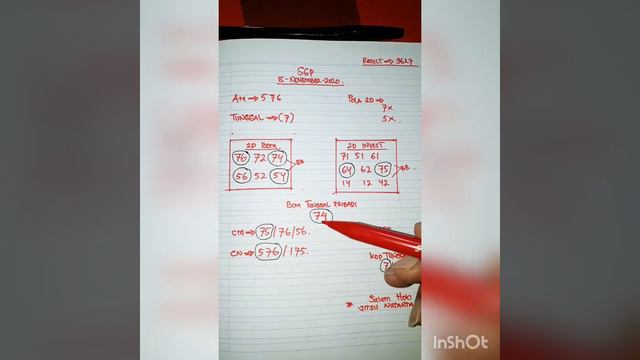 RESULT => 3627
SGP
15-NOVEMBER-2020.
AM => 576
POLA 2D =>
7x
TUNGGAL => (7)
5x.
2D BOM
76 72 74
56 52 54
BB
2D INVEST
71 51 61
64 62 75
14 12 42
BB
BOM TUNGGAL PRIBADI
74
CM => 75/76/56.
CN => 576/175.
KOP TUNG
7
* Salam Hoki
InShOt